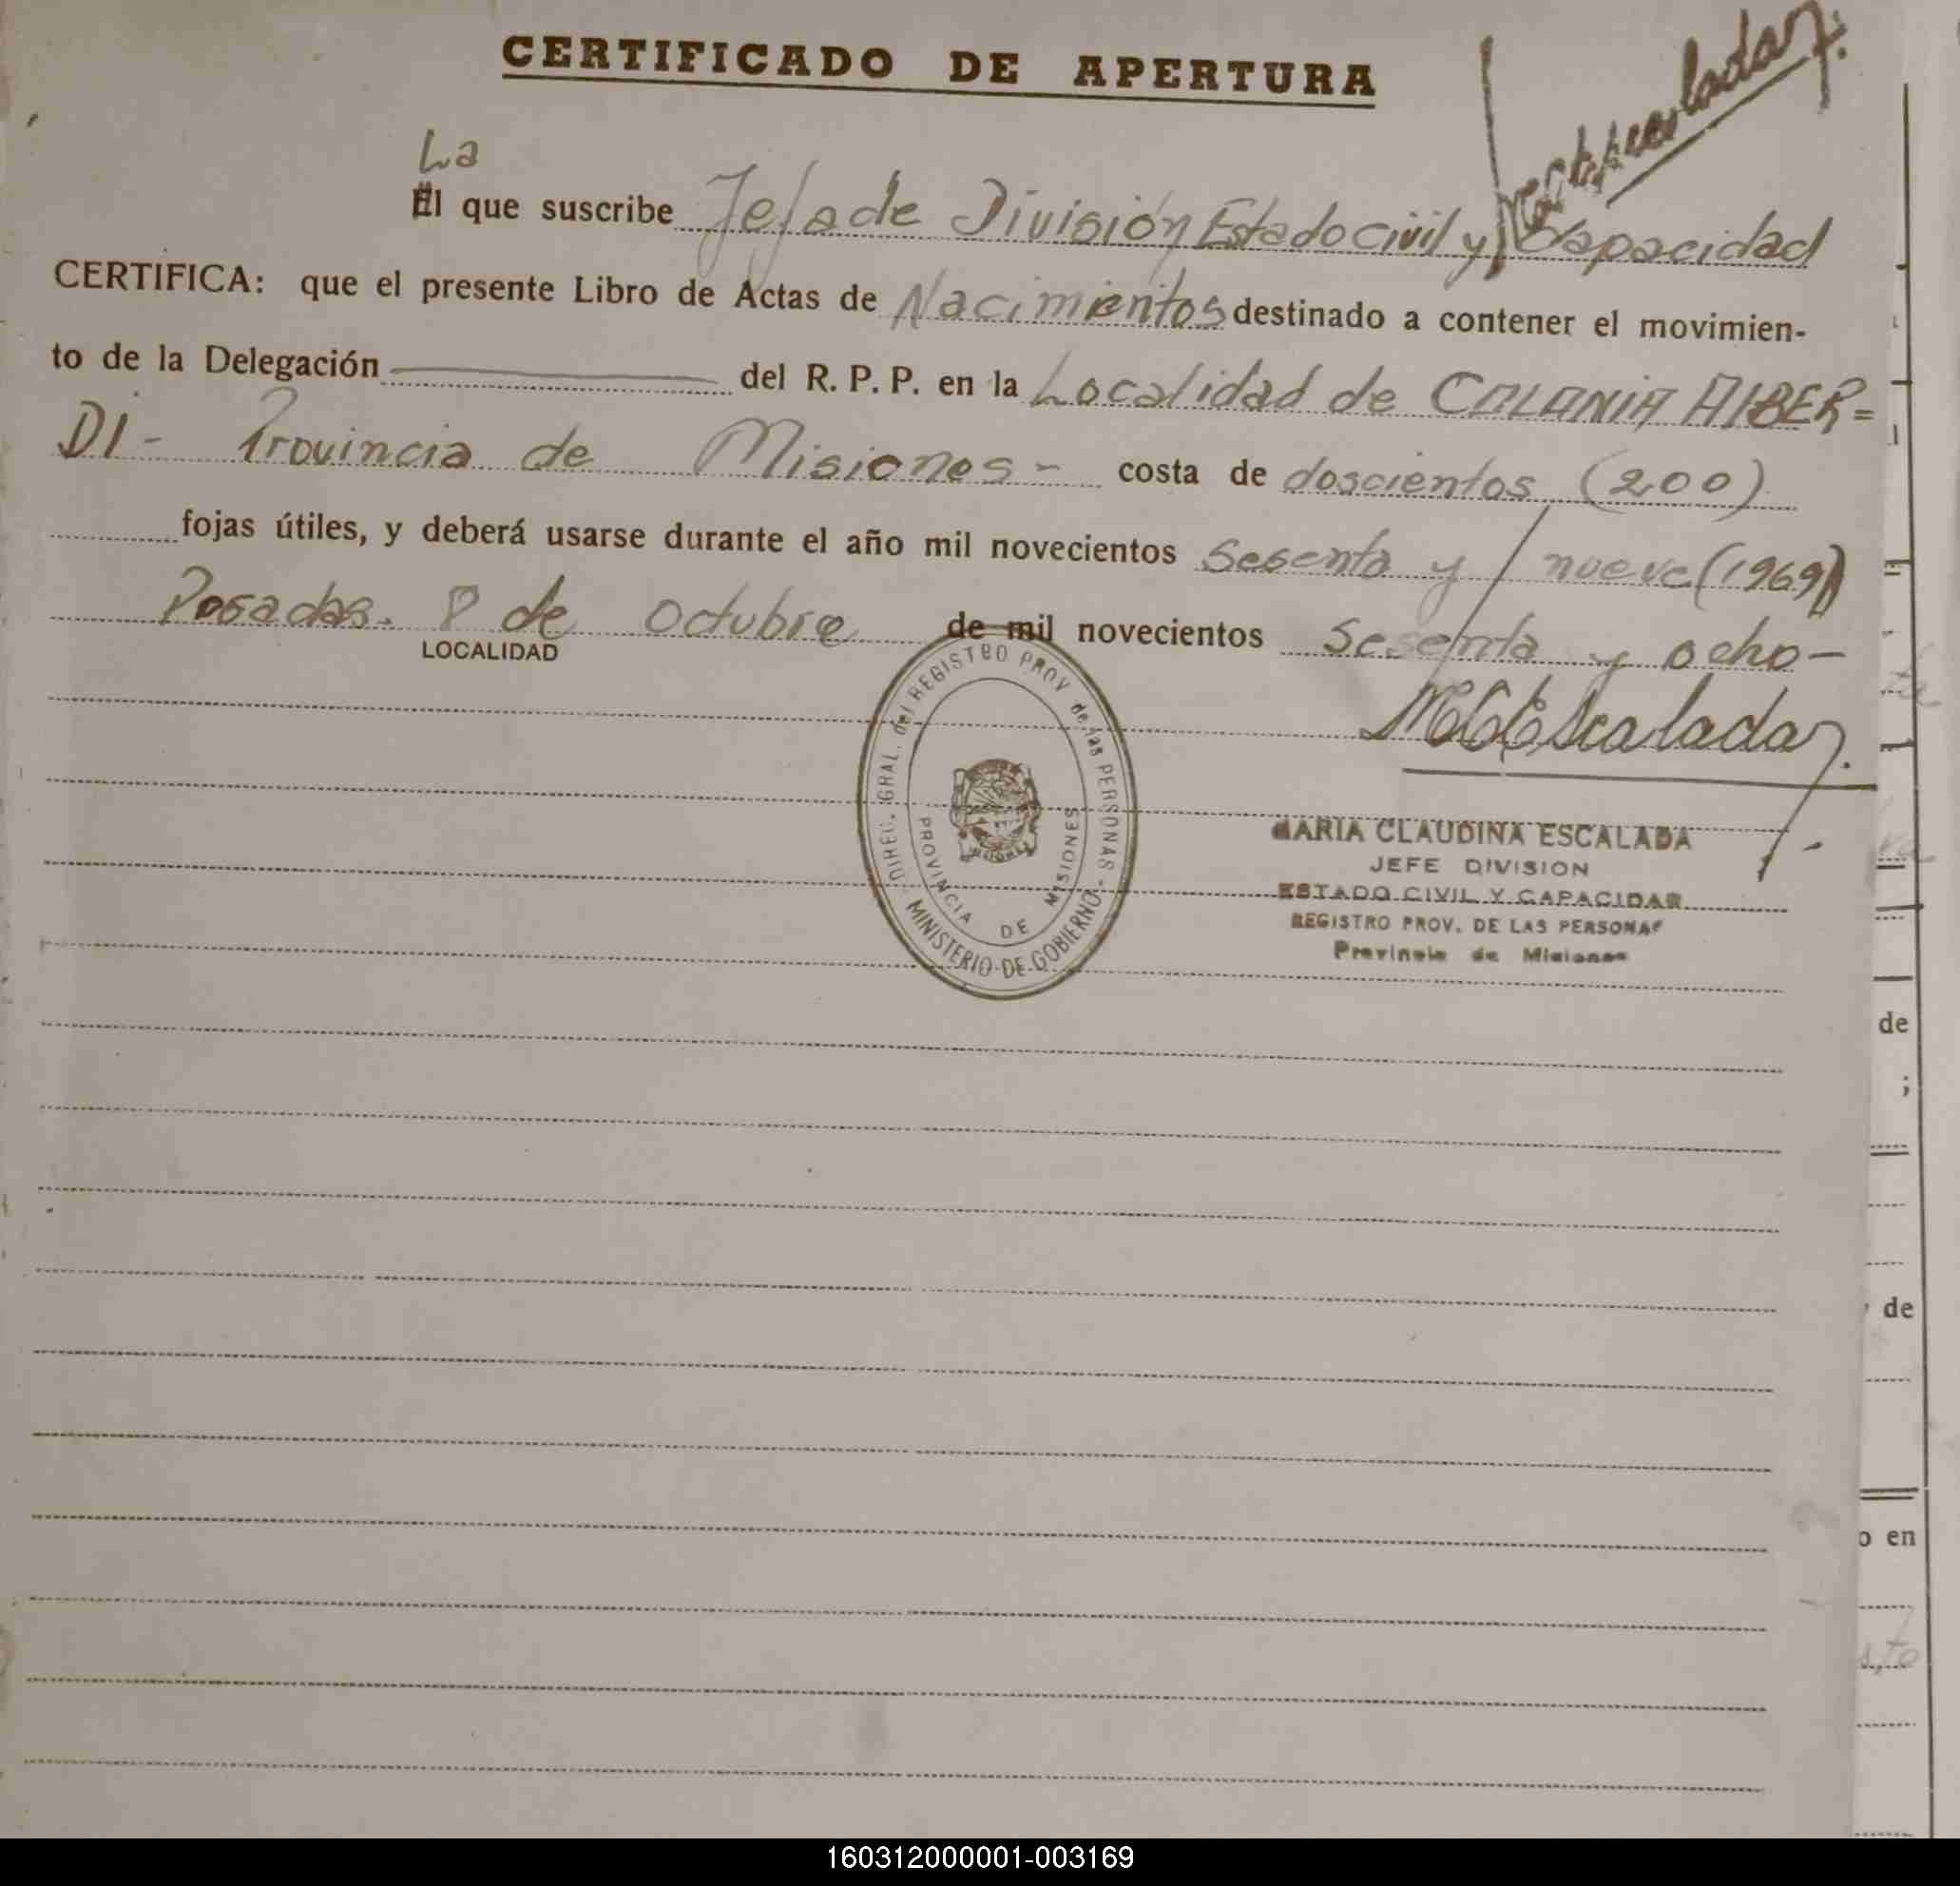 CERTIFICADO DE APERTURA
La
El que suscribe Jefa de División Estado civil y Capacidad
CERTIFICA: que el presente Libro de Actas de Nacimientos destinado a contener el movimien-
to de la Delegación del R. P. P. en la Localidad de COLONIA ALBER=
DI - Provincia de Misiones - costa de doscientos (200)
fojas útiles, y deberá usarse durante el año mil novecientos Sesenta y nueve (1969)
Posadas. 8 de Octubre de mil novecientos Sesenta y ocho -
LOCALIDAD
Escalada
DIREC. GRAL. del REGISTRO PROV de las PERSONAS - MINISTERIO DE GOBIERNO
PROVINCIA DE MISIONES
MARIA CLAUDINA ESCALADA
JEFE DIVISION
ESTADO CIVIL Y CAPACIDAD
REGISTRO PROV. DE LAS PERSONAS
Provincia de Misiones
de
;
de
o en
160312000001-003169